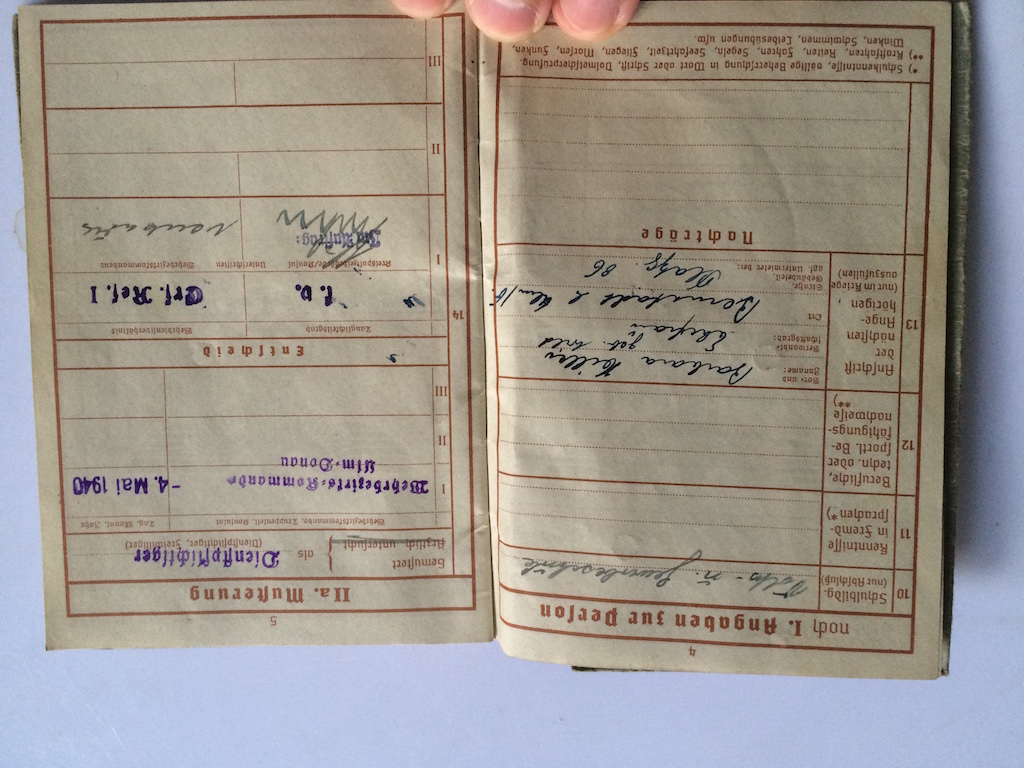 4
noch I. Angaben zur Person
10
Schulbildg.
(nur Abschluß)
Volks- u. Gewerbeschule
11
Kenntnisse
in Fremd-
sprachen *)
12
Berufliche,
techn. oder
sportl. Be-
fähigungs-
nachweise
**)
13
Anschrift
der
nächsten
Ange-
hörigen
(nur im Kriege
auszufüllen)
Vor- und
Zuname:
Barbara Killer
Personenst.
Ehefrau geb.
Ort
Bernstadt
Straße,
Gebäudeteil,
ggf. Untermieter bei:
86
Nachträge
*) Schulkenntnisse, völlige Beherrschung in Wort oder Schrift, Dolmetscherprüfung.
**) Kraftfahren, Reiten, Fahren, Segeln, Seefahrtszeit, Fliegen, Morsen, Funken,
Winken, Schwimmen, Leibesübungen usw.
5
IIa. Musterung
Gemustert
Ärztlich untersucht
als
Dienstpflichtiger
(Dienstpflichtiger, Freiwilliger)
Wehrbezirkskommando, Truppenteil, Konsulat
Tag, Monat, Jahr
I
Wehrbezirks-Kommando
Ulm-Donau
-4. Mai 1940
II
III
Entscheid
14
Tauglichkeitsgrad
Wehrdienstverhältnis
k. v.
Ers. Res. I
Kreispolizeibehörde/Konsul
Unterschriften
Wehrbezirkskommandeur
I
Im Auftrag:
II
III